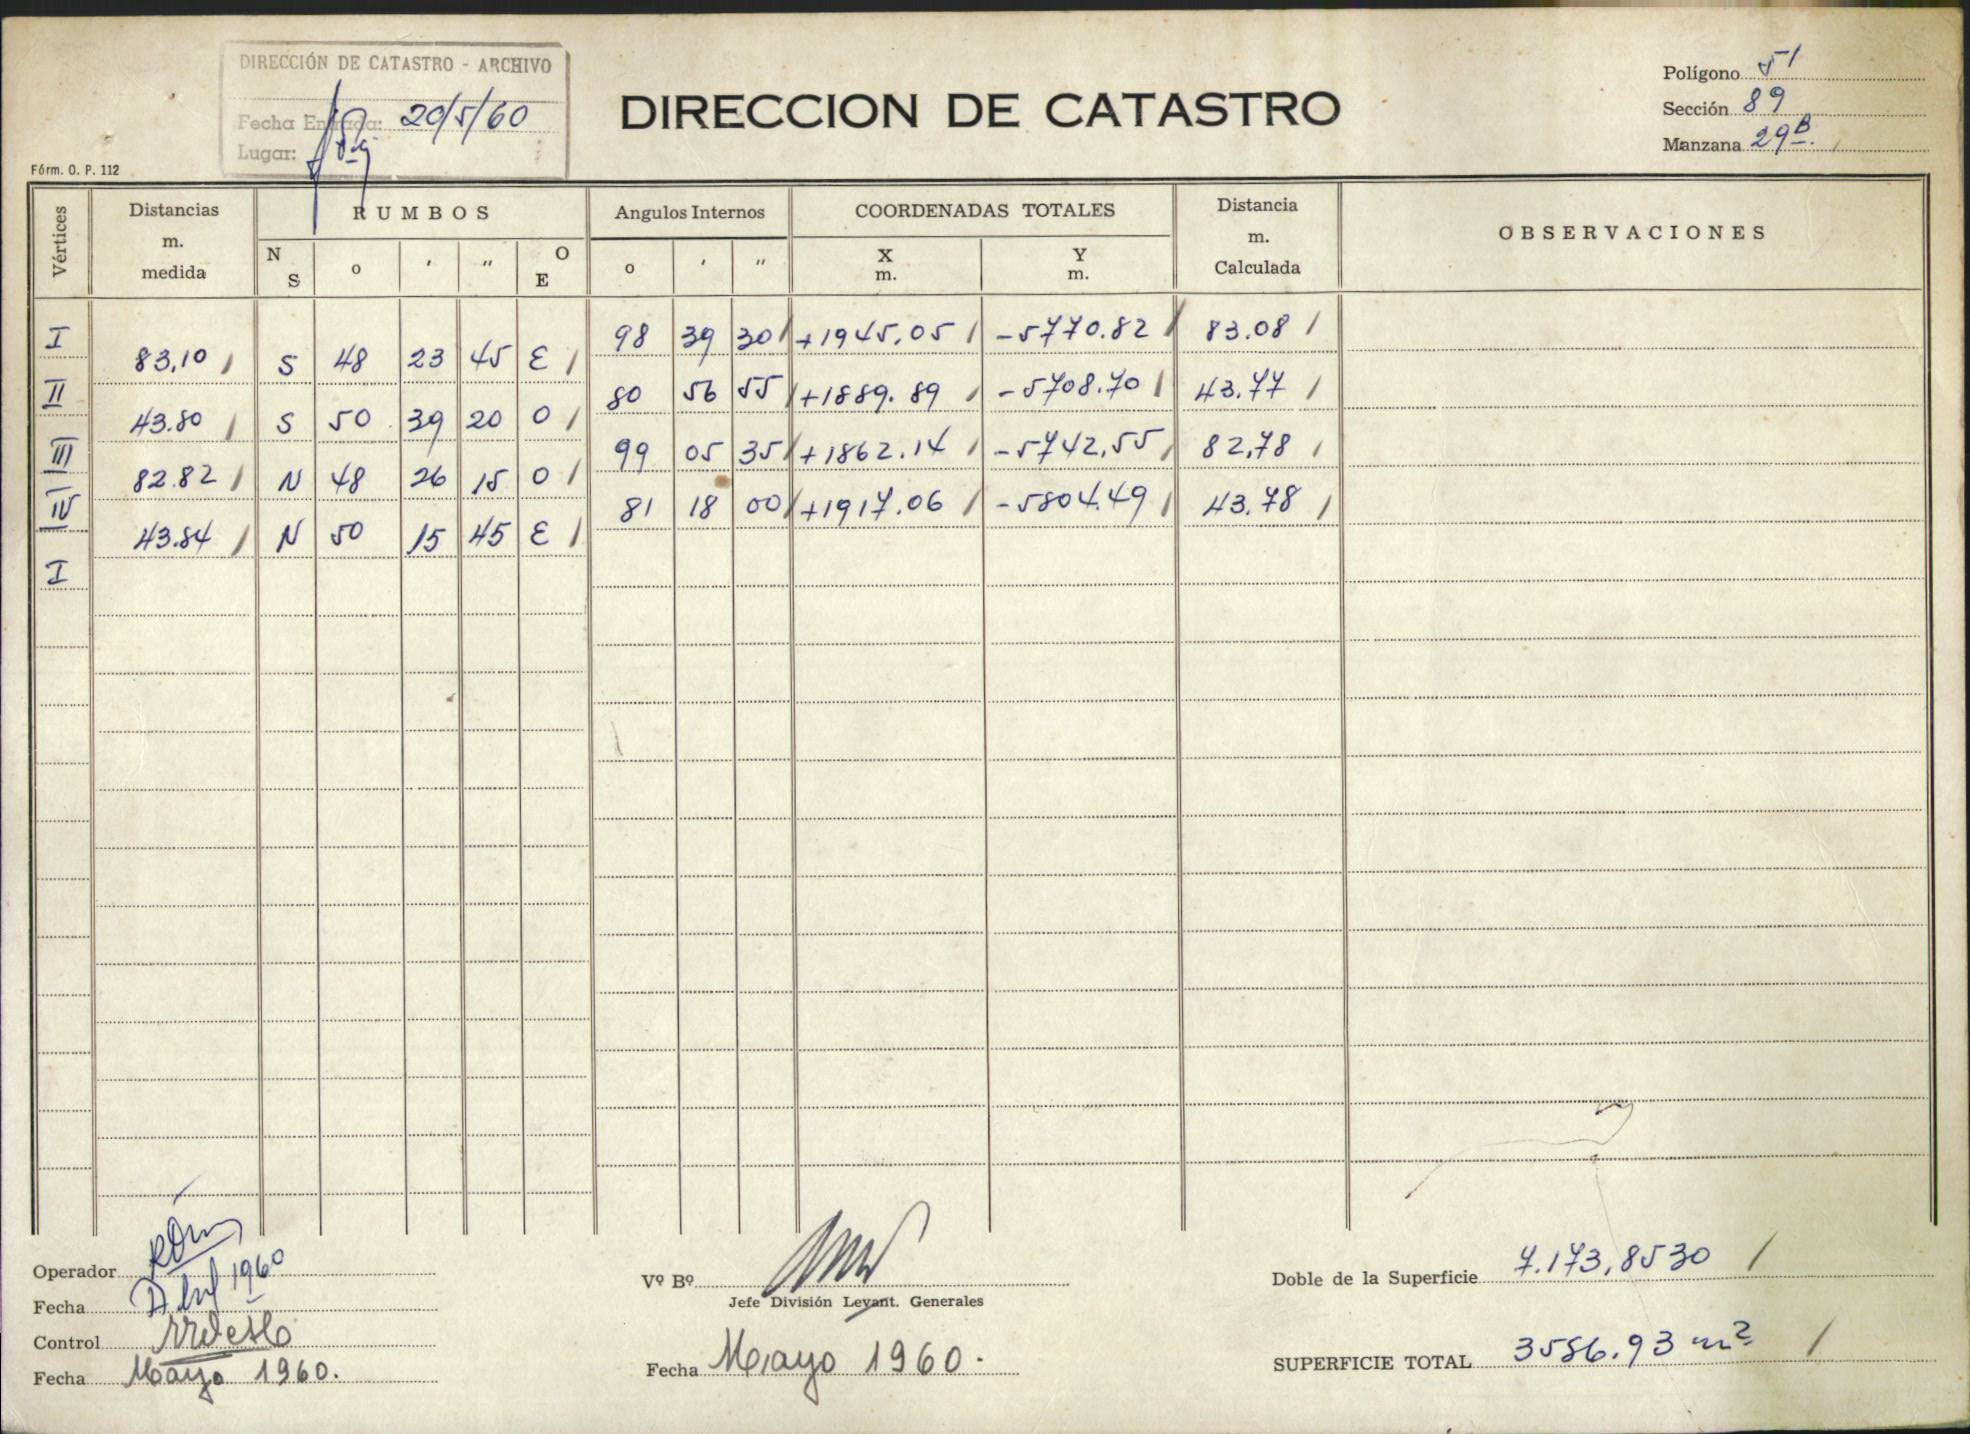 DIRECCIÓN DE CATASTRO - ARCHIVO
Fecha Entrada: 20/5/60
Lugar:
DIRECCION DE CATASTRO
Polígono 51
Sección 89
Manzana 29B.
Fórm. O. P. 112
Vértices
Distancias m. medida
RUMBOS
N S o ' " O E
Angulos Internos
o ' "
COORDENADAS TOTALES
X m. Y m.
Distancia m. Calculada
OBSERVACIONES
I 98 39 30 +1945,05 -5770.82 83.08
83,10 S 48 23 45 E
II 80 56 55 +1889.89 -5708.70 43.77
43.80 S 50 39 20 O
III 99 05 35 +1862.14 -5742,55 82,78
82.82 N 48 26 15 O
IV 81 18 00 +1917.06 -5804.49 43.78
43.84 N 50 15 45 E
I
Operador
Fecha Abril 1960
Control
Fecha Mayo 1960.
Vº Bº
Jefe División Levant. Generales
Fecha Mayo 1960.
Doble de la Superficie 7.173,8530
SUPERFICIE TOTAL 3586.93 m²